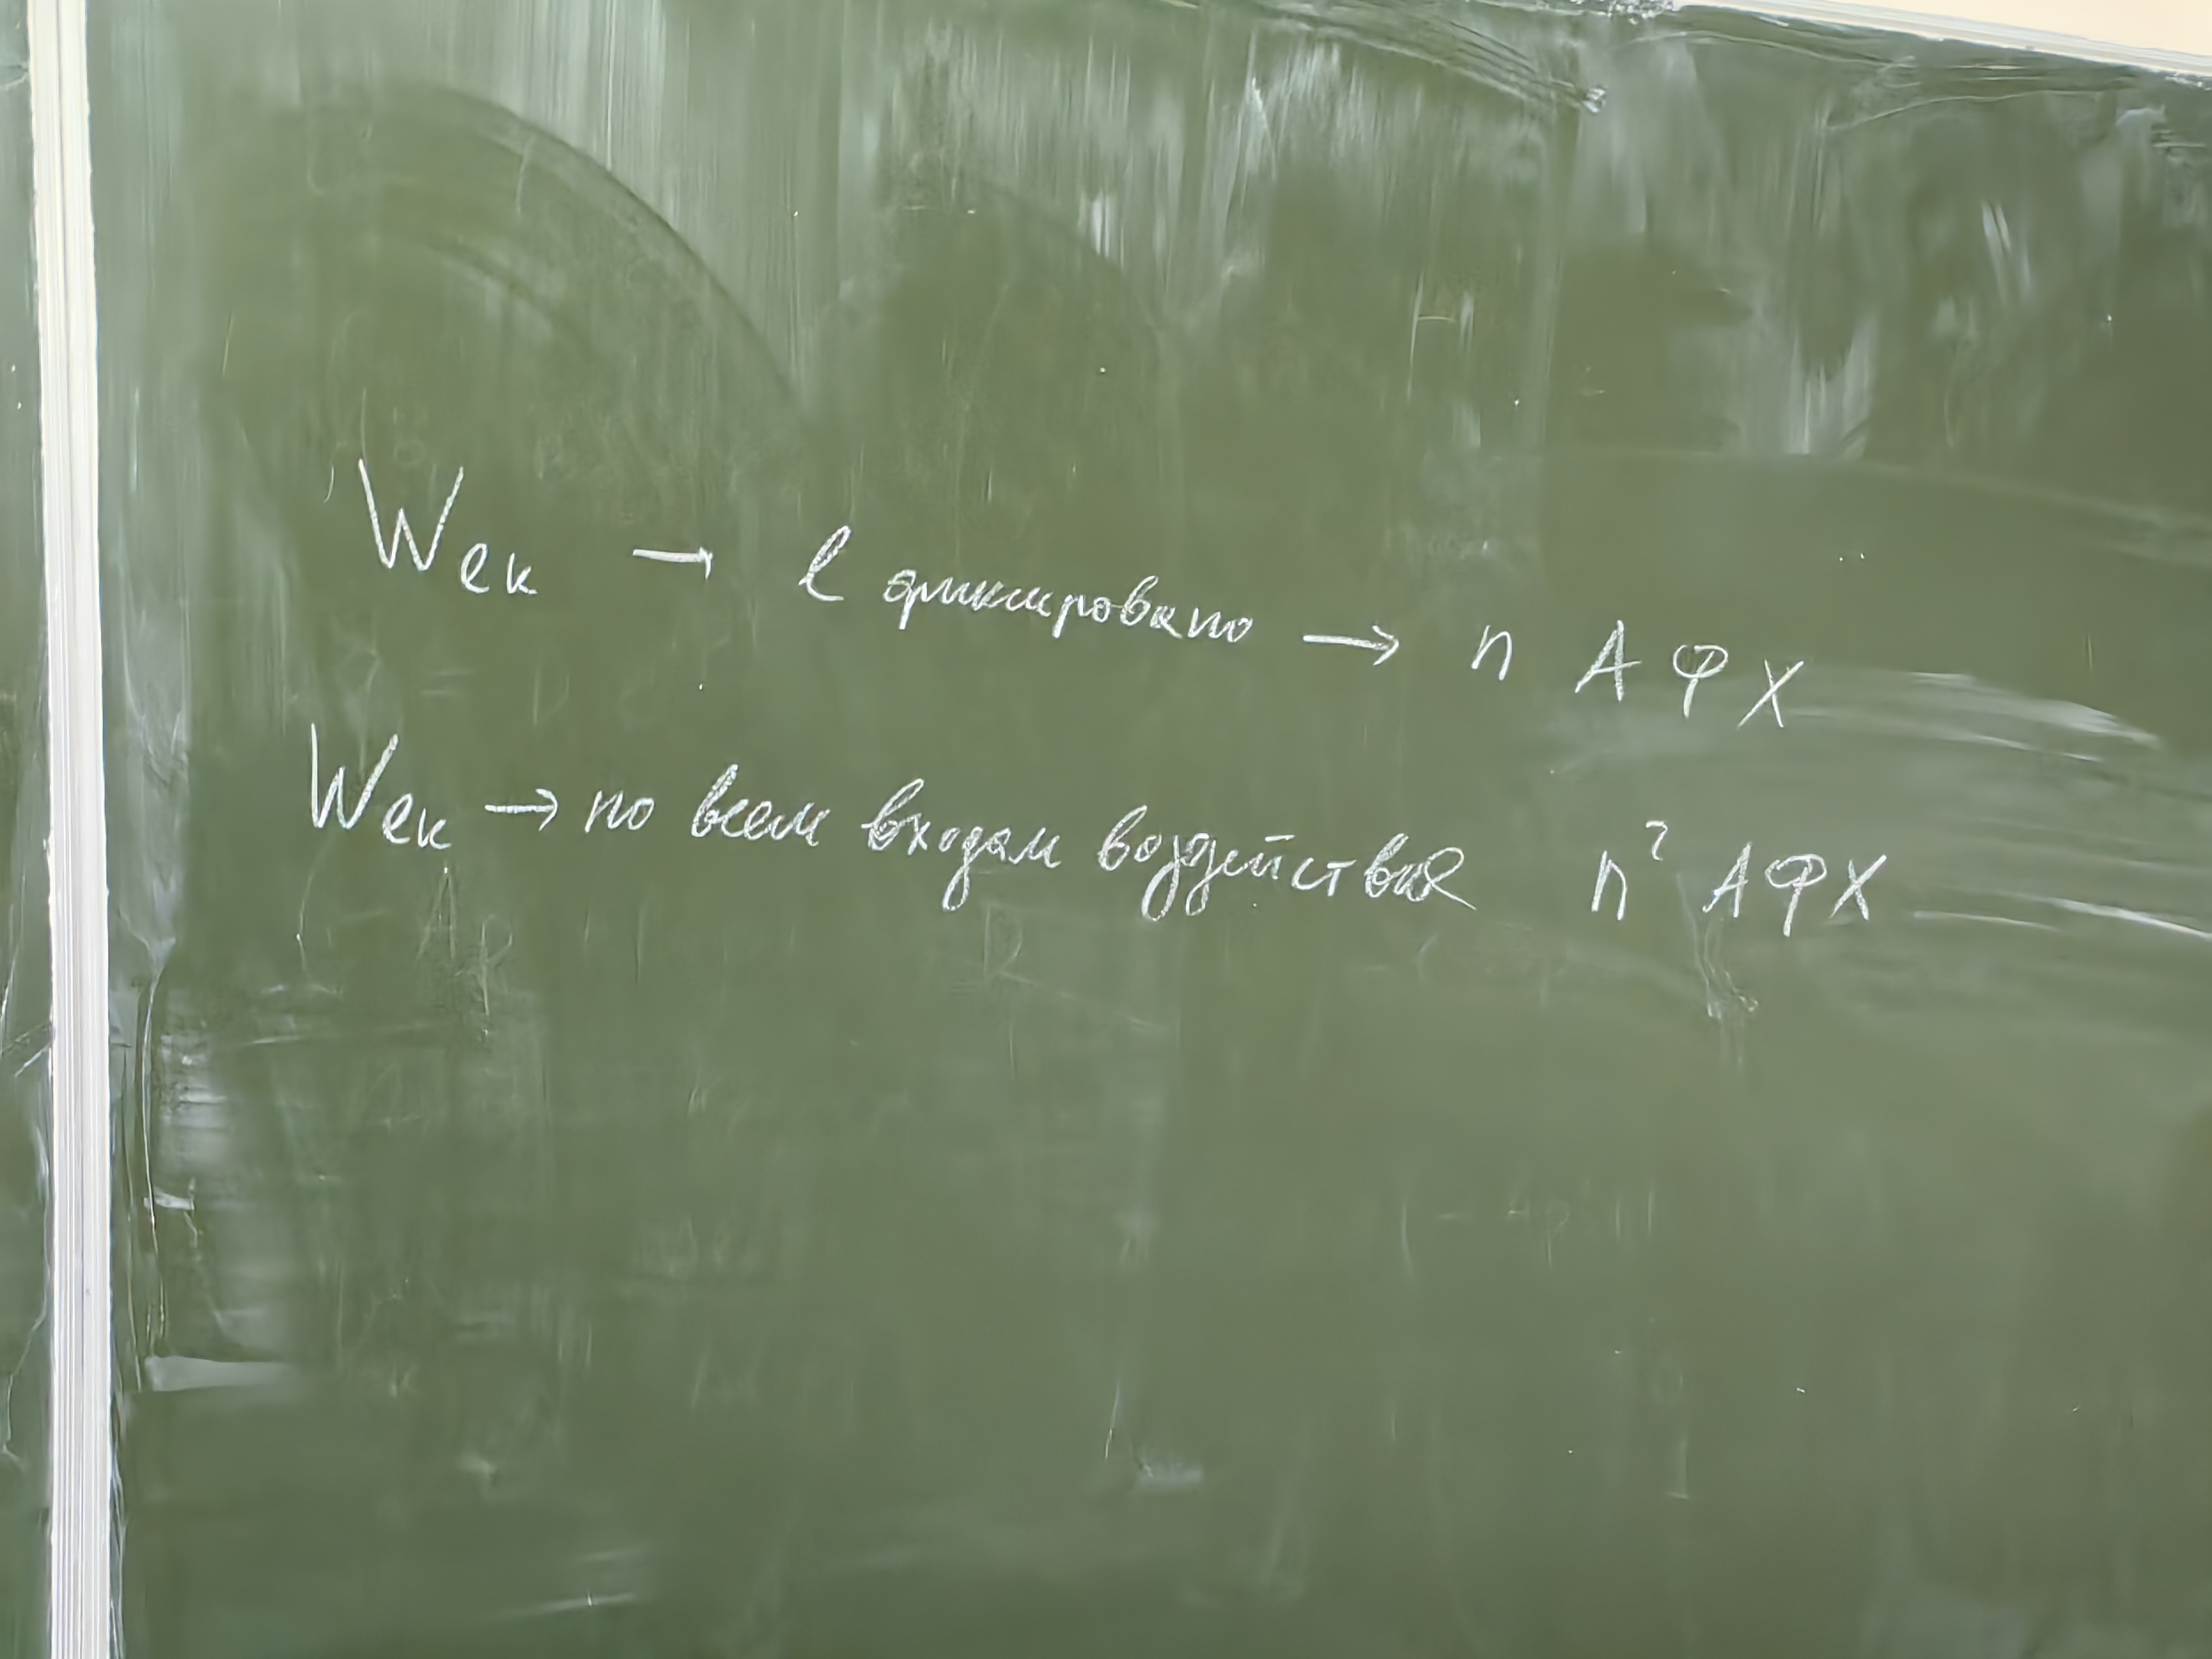 Wек → l фиксировано → n АФХ
Wек → по всем входам воздействия n² АФХ